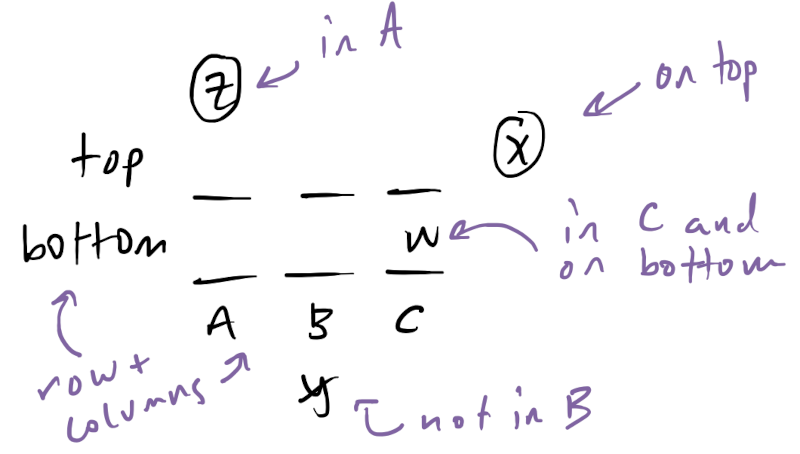 in A
Z
on top
X
top
bottom
W
in C and
on bottom
A B C
row +
columns
y
not in B